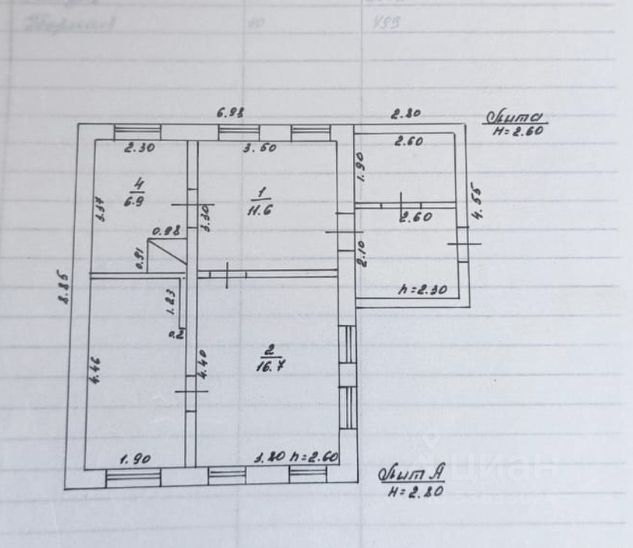 6.98
2.80
Лит а
H=2.60
2.30
3.60
2.60
4
6.9
1
11.6
1.90
3.37
3.30
4.55
2.60
0.98
0.91
2.10
8.85
h=2.30
1.23
0.2
2
16.7
4.46
4.40
1.90
3.80 h=2.60
Лит А
H=2.80
циан